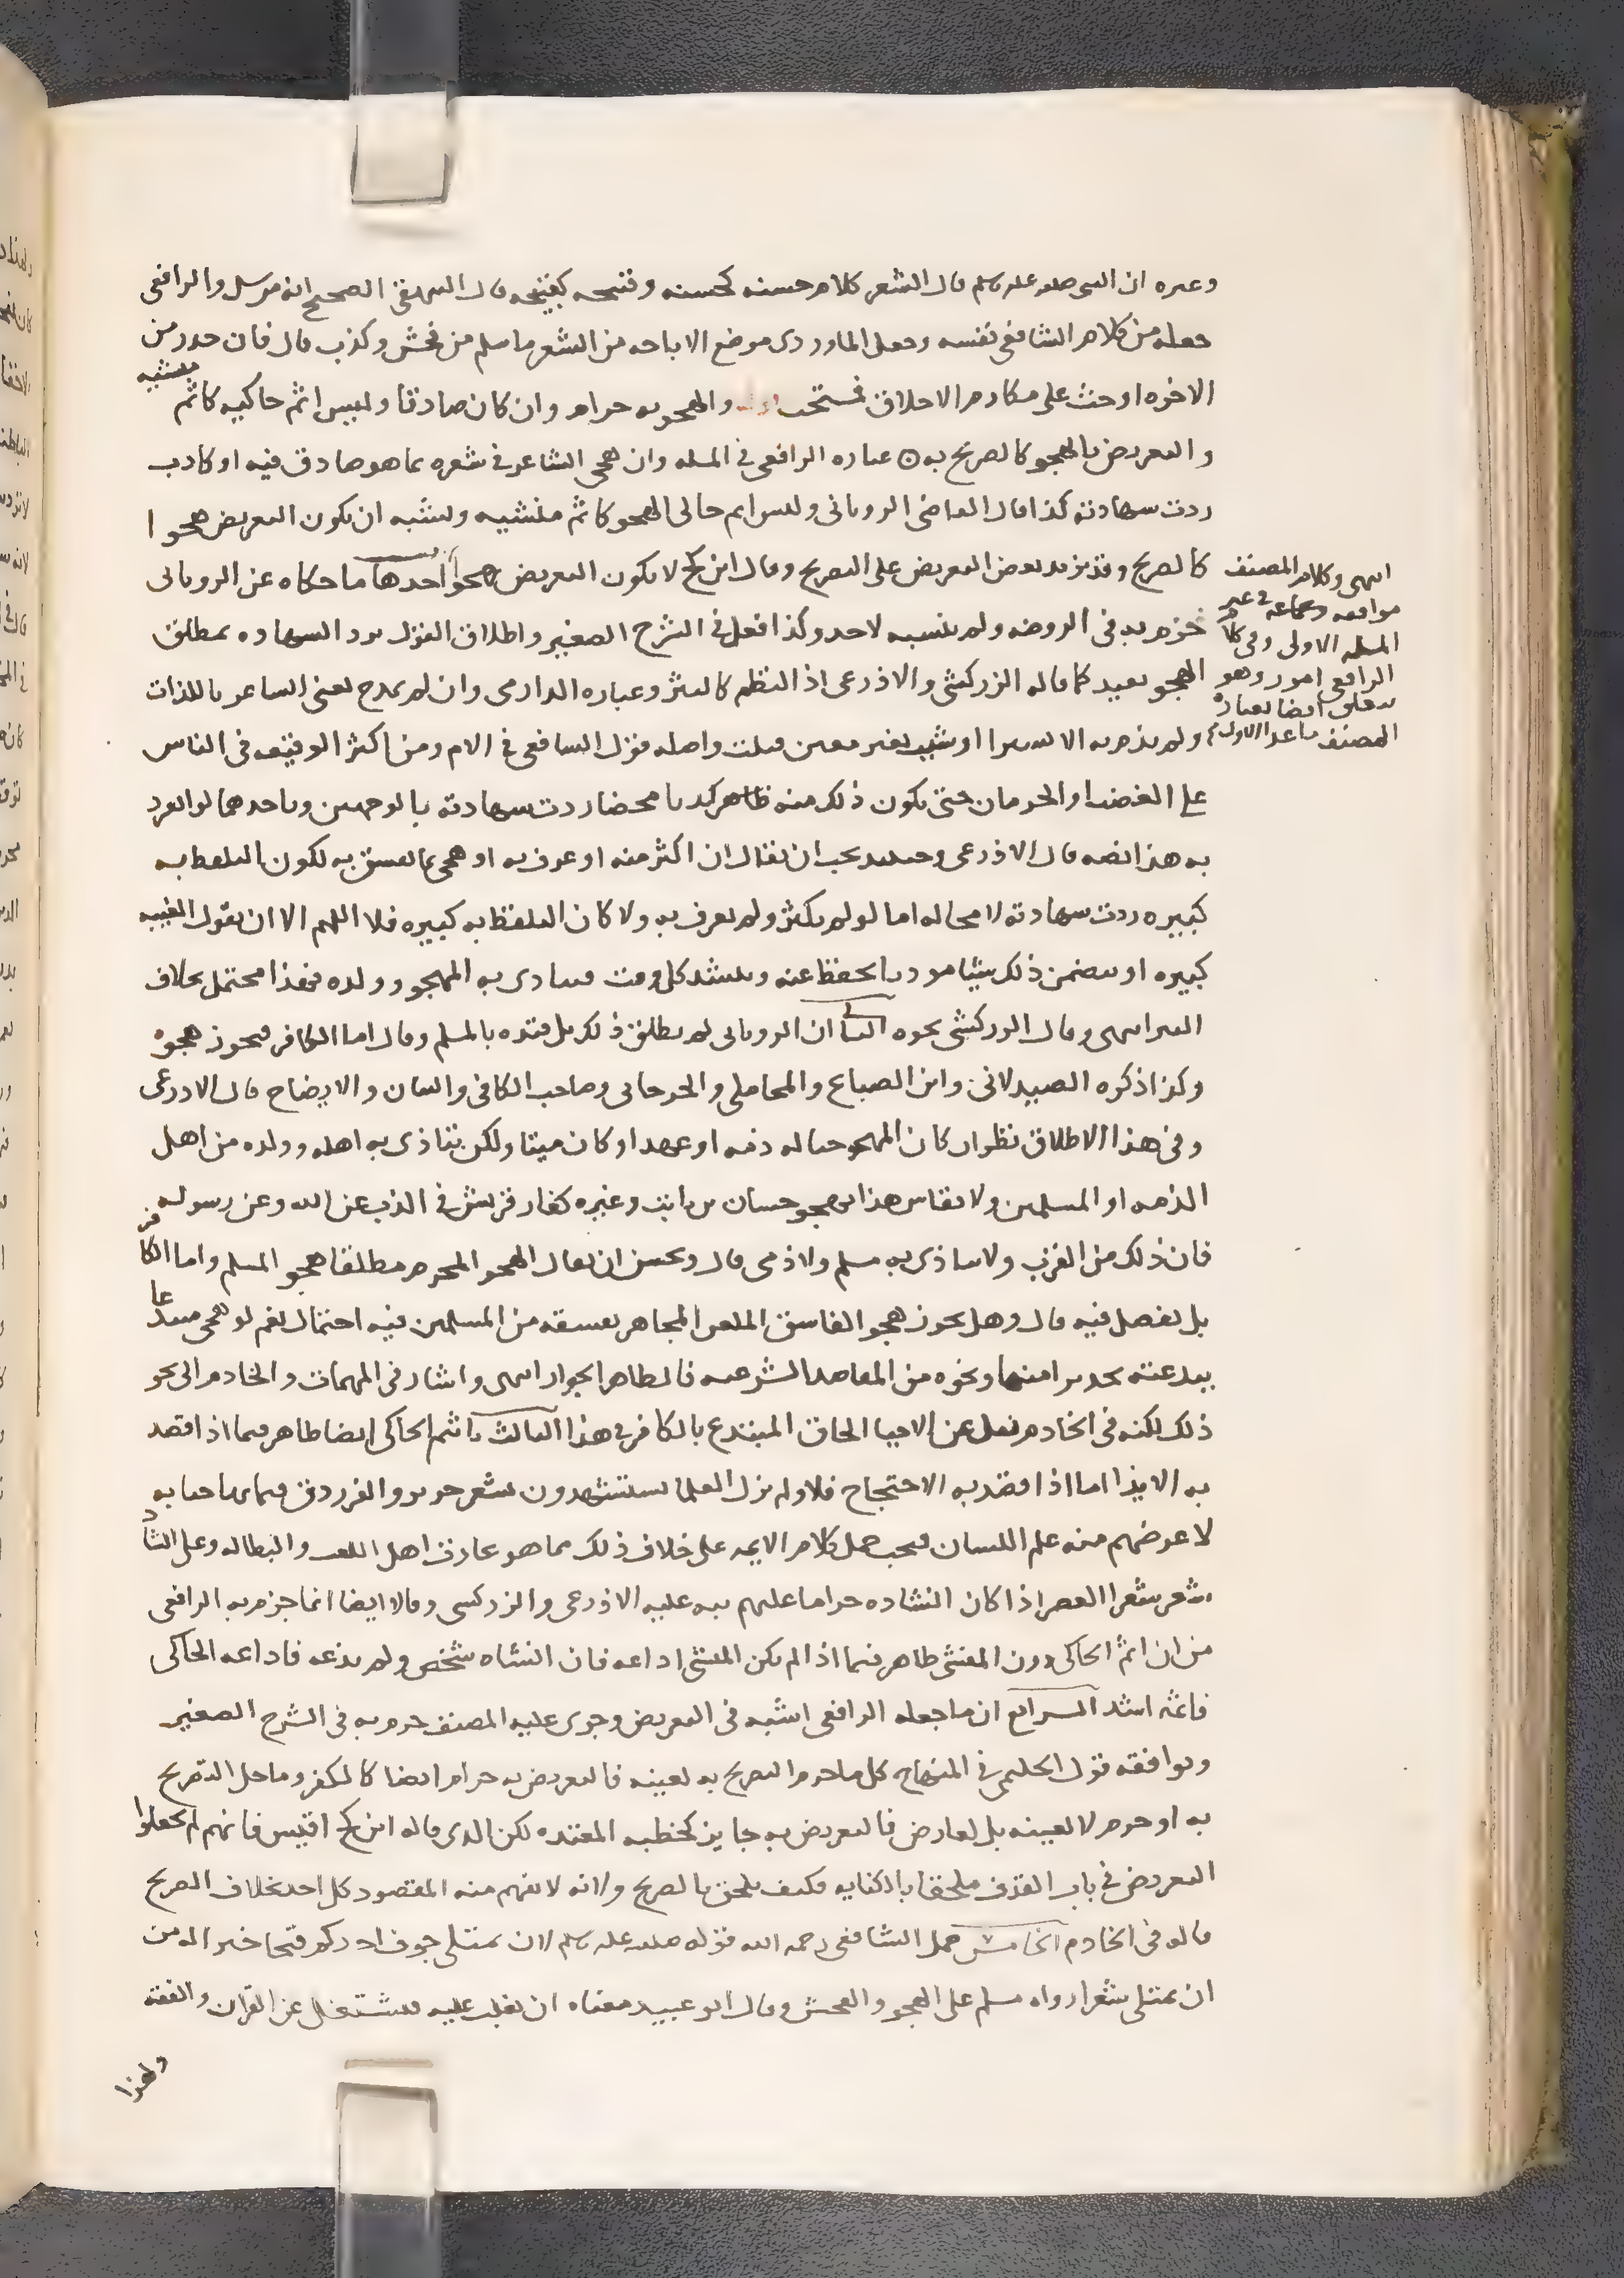 وغيره ان النبي صلى الله عليه وسلم قال الشعر كلام حسنه كحسنه وقبيحه كقبيحه قال البيهقي الصحيح انه مرسل والرافعي
جعله من كلام الشافعي نفسه وجعل الماوردي موضع الاباحه من الشعر ما سلم من فحش وكذب قال فان حذر من
الاخره او حث على مكارم الاخلاق فمستحب والهجو به حرام وان كان صادقا وليس اثم حاكيه كاثم منشيه
والتعريض بالهجو كالصريح به عباره الرافعي في المسله وان هجى الشاعر في شعره بما هو صادق فيه او كاذب
ردت شهادته كذا قال القاضي الروياني وليس اثم حاكي الهجو كاثم منشيه ويشبه ان يكون التعريض هجوا
كالصريح وقد يزيد بعض التعريض على التصريح وقال ابن كج لا يكون التعريض هجوا احدها ما حكاه عن الروياني
جزم به في الروضه ولم ينسبه لاحد وكذا فعل في الشرح الصغير واطلاق القول برد الشهاده بمطلق
الهجو بعيد كما قاله الزركشي والاذرعي اذ النظم كالنثر وعباره الدارمي وان لم يمدح يعني الشاعر باللذات
ولم يذم به الا يسيرا او شبب بغير معين قبلت واصله قول الشافعي في الام ومن اكثر الوقيعه في الناس
على الغضب او الحرمان حتى يكون ذلك منه ظاهر كذبا محضا ردت شهادته بالوجهين وباحدهما لو انفرد
به هذا نصه قال الاذرعي وحينئذ يجب ان يقال ان اكثر منه او عرف به او هجى بما يفسق به لكون التلفظ به
كبيره ردت شهادته لا محاله اما لو لم يكثر ولم يعرف به ولا كان التلفظ به كبيره فلا اللهم الا ان نقول الغيبه
كبيره او يتضمن ذلك شيا موذيا يحفظ عنه وينشد كل وقت فيتاذى به المهجو وولده فهذا محتمل بخلاف
النثر انتهى وقال الزركشي نحوه الثاني ان الروياني لم يطلق ذلك بل قيده بالمسلم وقال اما الكافر فيجوز هجوه
وكذا ذكره الصيدلاني وابن الصباغ والمحاملي والجرجاني وصاحب الكافي والبيان والايضاح قال الاذرعي
وفي هذا الاطلاق نظر ان كان المهجو حيا له ذمه او عهد او كان ميتا ولكن يتاذى به اهله وولده من اهل
الذمه او المسلمين ولا يقاس هذا بهجو حسان بن ثابت وغيره كفار قريش في الذب عن الله وعن رسوله
فان ذلك من القرب ولا يتاذى به مسلم ولا ذمي قال ويحسن ان يقال الهجو المحرم مطلقا هجو المسلم واما الكافر
بل يفصل فيه قال وهل يجوز هجو الفاسق المعلن المجاهر بفسقه من المسلمين فيه احتمال نعم لو هجى مبتدعا
ببدعته تحذيرا منها ونحوه من المقاصد الشرعيه فالظاهر الجواز انتهى واشار في المهمات والخادم الى نحو
ذلك لكنه في الخادم نقل عن الاحيا الحاق المبتدع بالكافر في هذا الثالث ما ثم الحاكي ايضا ظاهر فيما اذا قصد
به الايذا اما اذا قصد به الاحتجاج فلا ولم يزل العلما يستشهدون بشعر جرير والفرزدق فيما تهاجيا به
لا غرضهم منه علم اللسان فيجب حمل كلام الايمه على خلاف ذلك مما هو عادت اهل اللعب والبطاله وعلى انشاد
شعر شعرا العصر اذا كان انشاده حراما عليهم نبه عليه الاذرعي والزركشي وقالا ايضا انما جزم به الرافعي
من ان اثم الحاكي دون المنشي ظاهر فيما اذا لم يكن المنشي اذاعه فان انشاه شخص ولم يذعه فاذاعه الحاكي
فاثمه اشد الرابع ان ما جعله الرافعي اشبه في التعريض وجرى عليه المصنف جزم به في الشرح الصغير
ويوافقه قول الحليمي في المنهاج كل ما حرم التصريح به لعينه فالتعريض به حرام ايضا كالكفر وما حل التصريح
به او حرم لا لعينه بل لعارض فالتعريض به جايز كخطبه المعتده لكن الذي قاله ابن كج اقيس فانهم لم يجعلوا
التعريض في باب القذف ملحقا بالكنايه فكيف يلحق بالصريح ولانه لا يفهم منه المقصود كل احد بخلاف الصريح
قاله في الخادم الخامس حمل الشافعي رحمه الله قوله صلى الله عليه وسلم لان يمتلي جوف احدكم قيحا خير له من
ان يمتلي شعرا رواه مسلم على الهجو والفحش وقال ابو عبيد معناه ان يغلب عليه فيشتغل عن القران والفقه
ولهذا
انتهى وكلام المصنف
موافقه وجماعه في غير
المسله الاولى وفي كلام
الرافعي امور وهو
يتعلق ايضا بعباره
المصنف ما عدا الاول